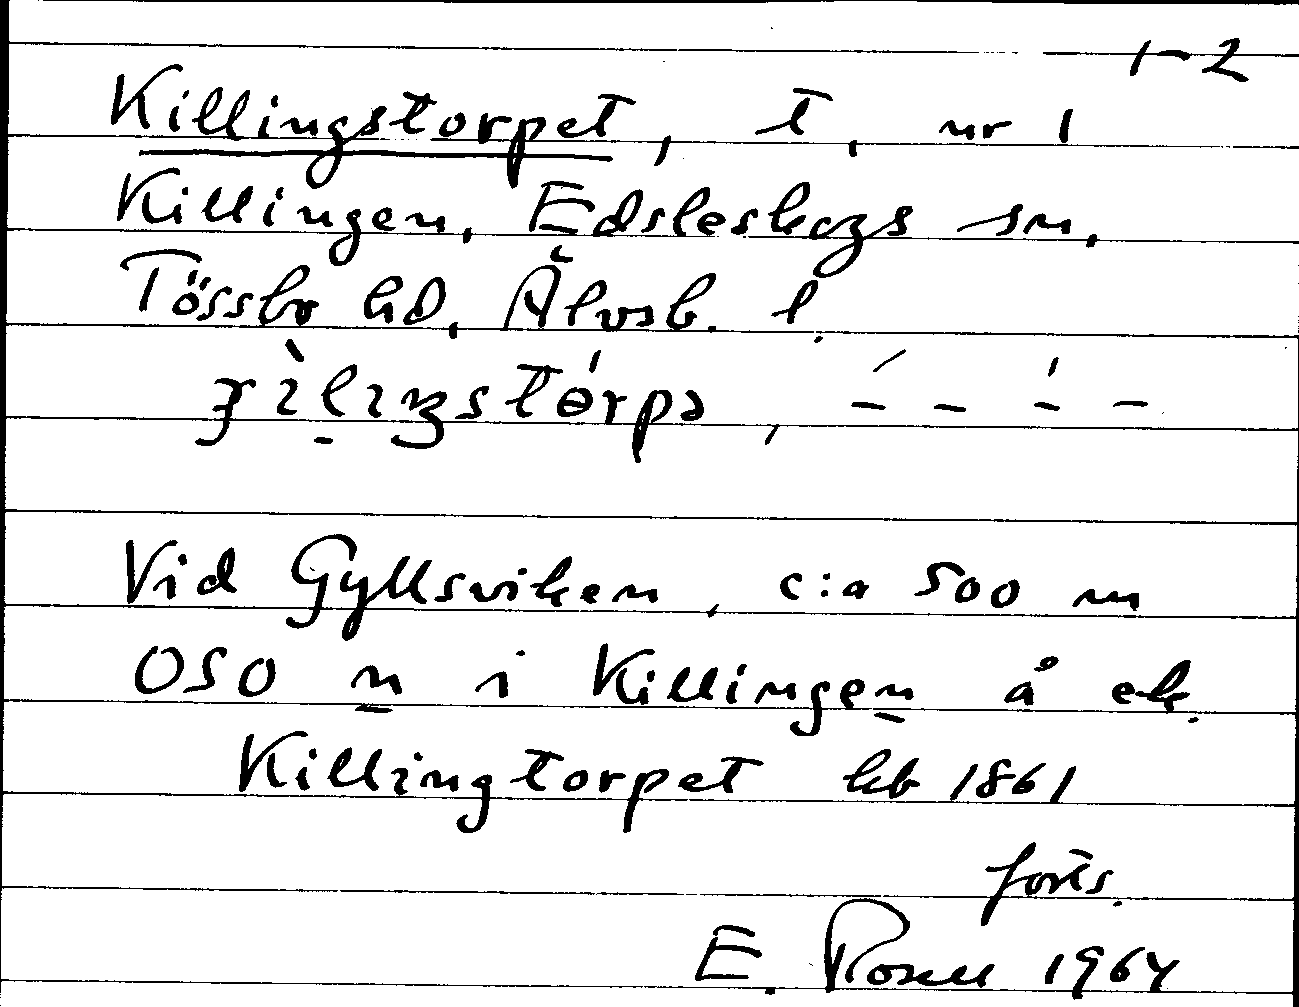 1-2
Killingstorpet, t, nr 1
Killingen, Edsleskogs sn,
Tössbo hd, Älvsb. l.
Vid Gyllsviken, c:a 500 m
OSO n i Killingen å ek.
Killingtorpet hb 1861
forts.
E. Rosell 1964